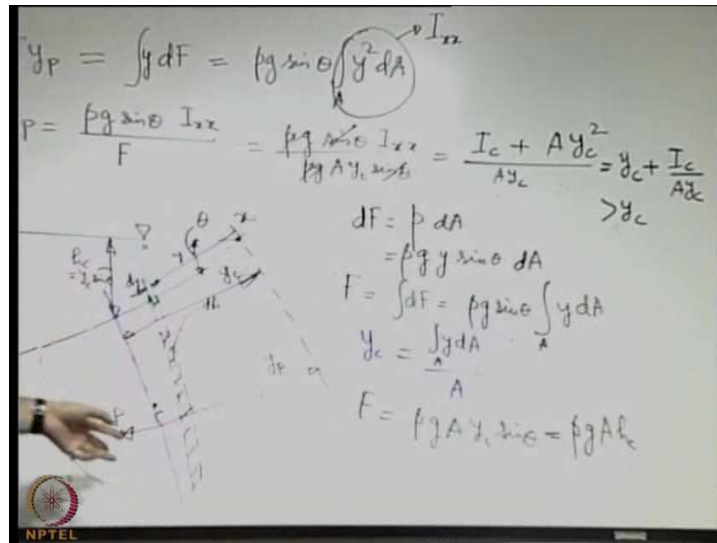 Fy_p = ∫y dF = ρg sin θ ∫_A y² dA → I_xx
y_p = ρg sinθ I_xx / F = ρg sinθ I_xx / ρg A y_c sinθ = I_c + A y_c² / A y_c = y_c + I_c / A y_c
> y_c
dF = p dA
= ρg y sinθ dA
F = ∫dF = ρg sinθ ∫_A y dA
y_c = ∫_A y dA / A
F = ρg A y_c sinθ = ρg A h_c
h_c
= y_c sinθ
θ
x
y
dy
y_c
y_p
P
C
NPTEL